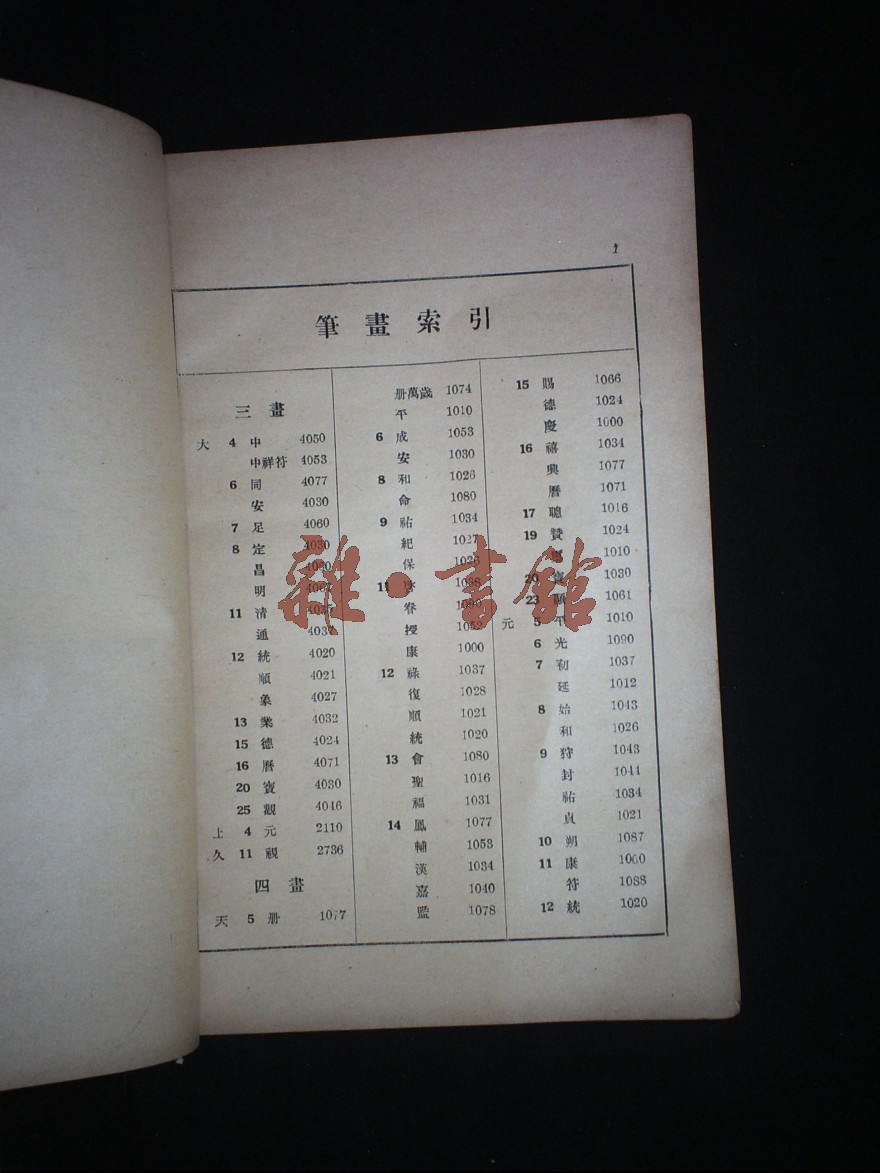 1
筆畫索引
三畫
大 4 中 4050
中祥符 4053
6 同 4077
安 4030
7 足 4060
8 定 4030
昌
明
11 清
通 4037
12 統 4020
順 4021
象 4027
13 業 4032
15 德 4024
16 曆 4071
20 寶 4030
25 觀 4046
上 4 元 2110
久 11 視 2736
四畫
天 5 册 1077
册萬歲 1074
平 1010
6 成 1053
安 1030
8 和 1026
命 1080
9 祐 1034
紀 1027
保 1026
11 啓
眷
授
康 1000
12 祿 1037
復 1028
順 1021
統 1020
13 會 1080
聖 1016
福 1031
14 鳳 1077
輔 1053
漢 1034
嘉 1040
監 1078
15 賜 1066
德 1024
慶 1000
16 禧 1034
興 1077
曆 1071
17 聰 1016
19 贊 1024
1010
20 寶 1030
23 顯 1061
元 5 平 1010
6 光 1090
7 初 1037
延 1012
8 始 1043
和 1026
9 狩 1043
封 1044
祐 1034
貞 1021
10 朔 1087
11 康 1000
符 1088
12 統 1020
雜·書館